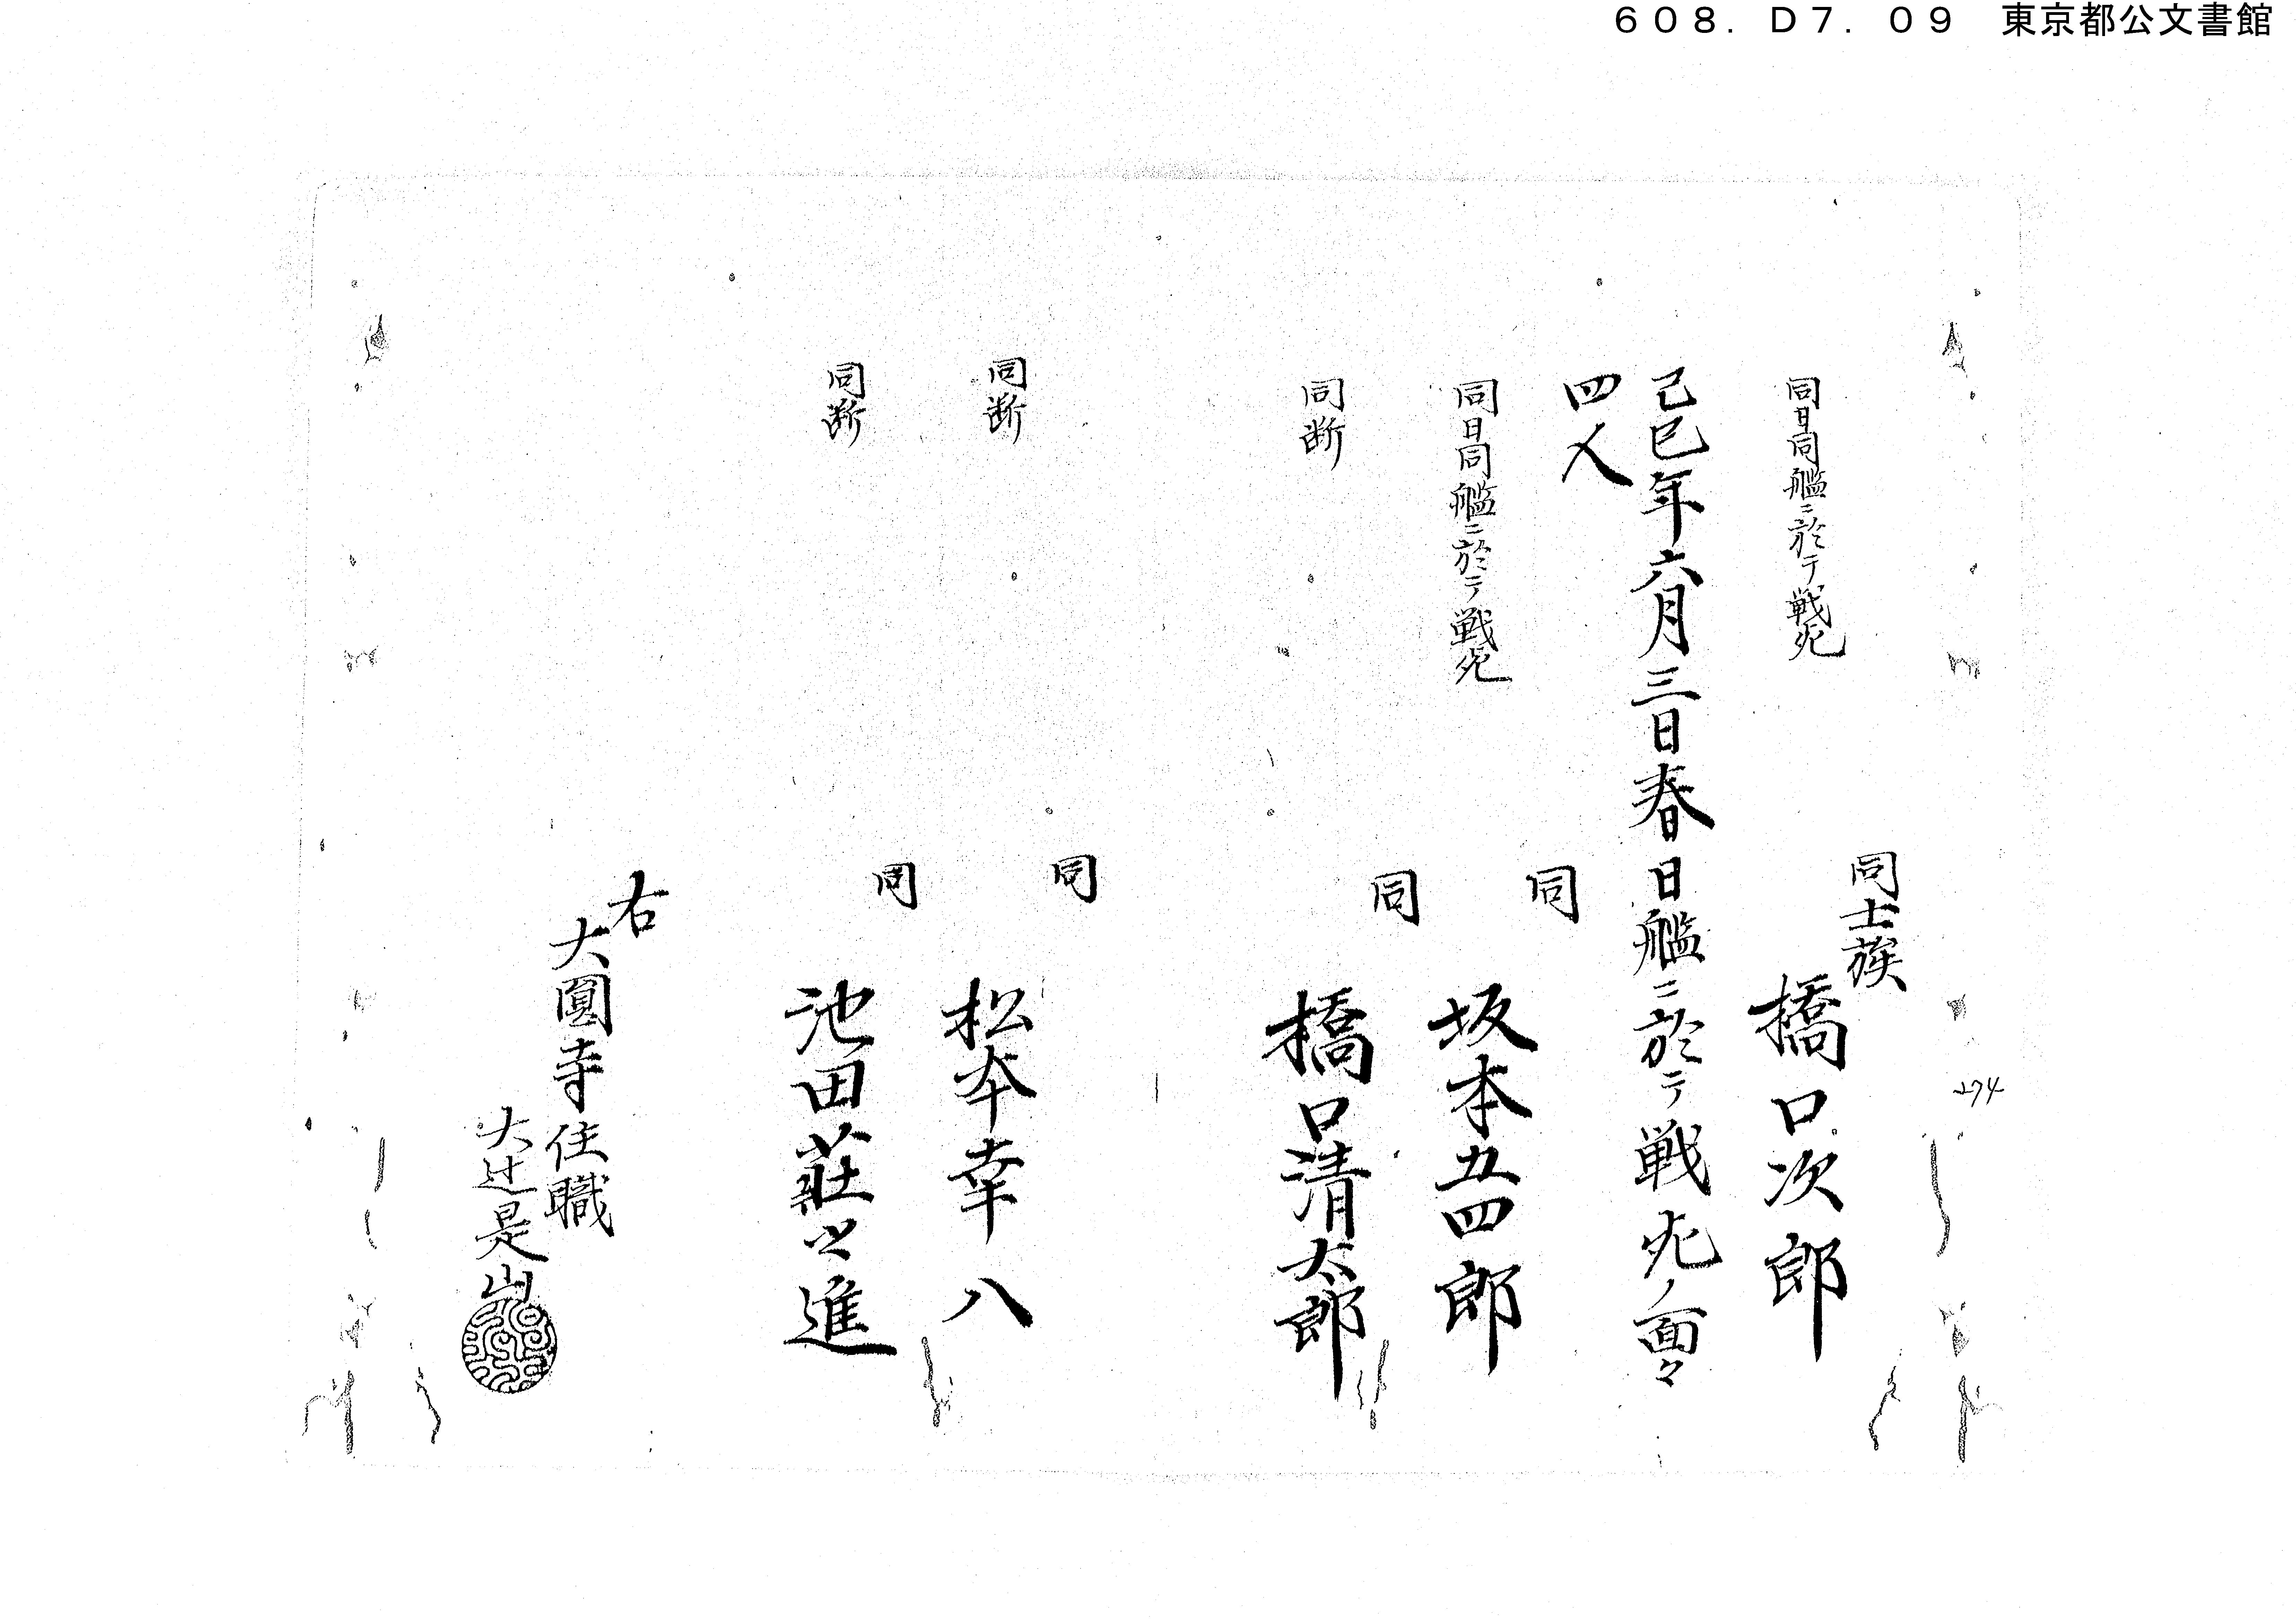 608.D7.09 東京都公文書館
同士族
同日同艦ニ於テ戦死
橋口次郎
己巳年六月三日春日艦ニ於テ戦死ノ面々
四人
同
同日同艦ニ於テ戦死
坂本五四郎
同
同断
橋口清太郎
同
同断
松本幸八
同
同断
池田莊之進
右
大圓寺住職
大辻是山
274